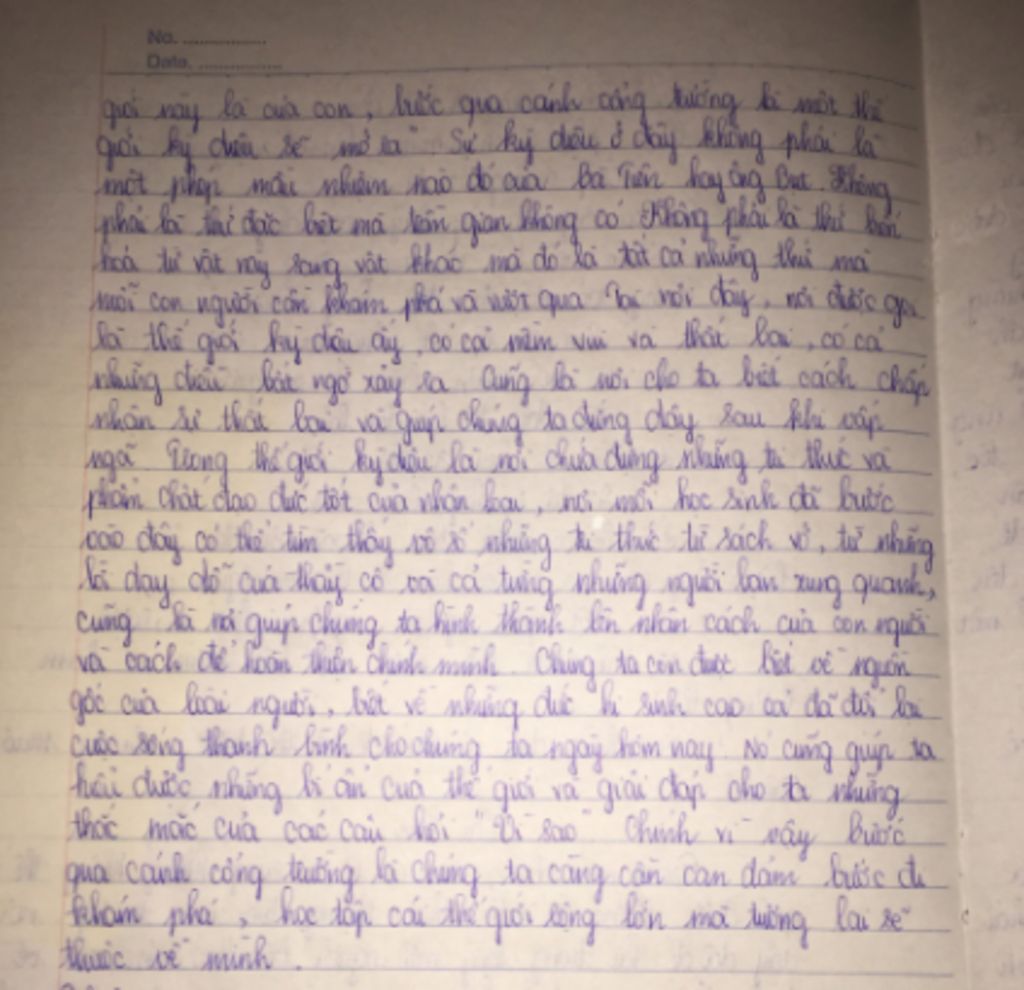 No. ................
Date. ................
giới này là của con, bước qua cánh cổng trường là một thế
giới kỳ diệu sẽ mở ra" Sự kỳ diệu ở đây không phải là
một phép màu nhiệm nào đó của Bà Tiên hay ông Bụt. Không
phải là thứ đặc biệt mà trần gian không có. Không phải là thứ biến
hoá từ vật này sang vật khác mà đó là tất cả những thứ mà
mỗi con người cần khám phá và vượt qua. Tại nơi đây, nơi được gọi
là thế giới kỳ diệu ấy, có cả niềm vui và thất bại, có cả
những điều bất ngờ xảy ra. Cũng là nơi cho ta biết cách chấp
nhận sự thất bại và giúp chúng ta đứng dậy sau khi vấp
ngã. Trong thế giới kỳ diệu là nơi chứa đựng những tri thức và
phẩm chất đạo đức tốt của nhân loại, nơi mỗi học sinh đã bước
vào đây có thể tìm thấy vô số những tri thức từ sách vở, từ những
lời dạy dỗ của thầy cô và cả từng những người bạn xung quanh,
cũng là nơi giúp chúng ta hình thành lên nhân cách của con người
và cách để hoàn thiện chính mình. Chúng ta còn được biết về nguồn
gốc của loài người, biết về những đức hi sinh cao cả đã đổi lại
cuộc sống thanh bình cho chúng ta ngày hôm nay. Nó cũng giúp ta
hiểu được những bí ẩn của thế giới và giải đáp cho ta những
thắc mắc của các câu hỏi "Vì sao". Chính vì vậy bước
qua cánh cổng trường là chúng ta càng cần can đảm bước đi
khám phá, học tập cái thế giới rộng lớn mà tương lai sẽ
thuộc về mình.